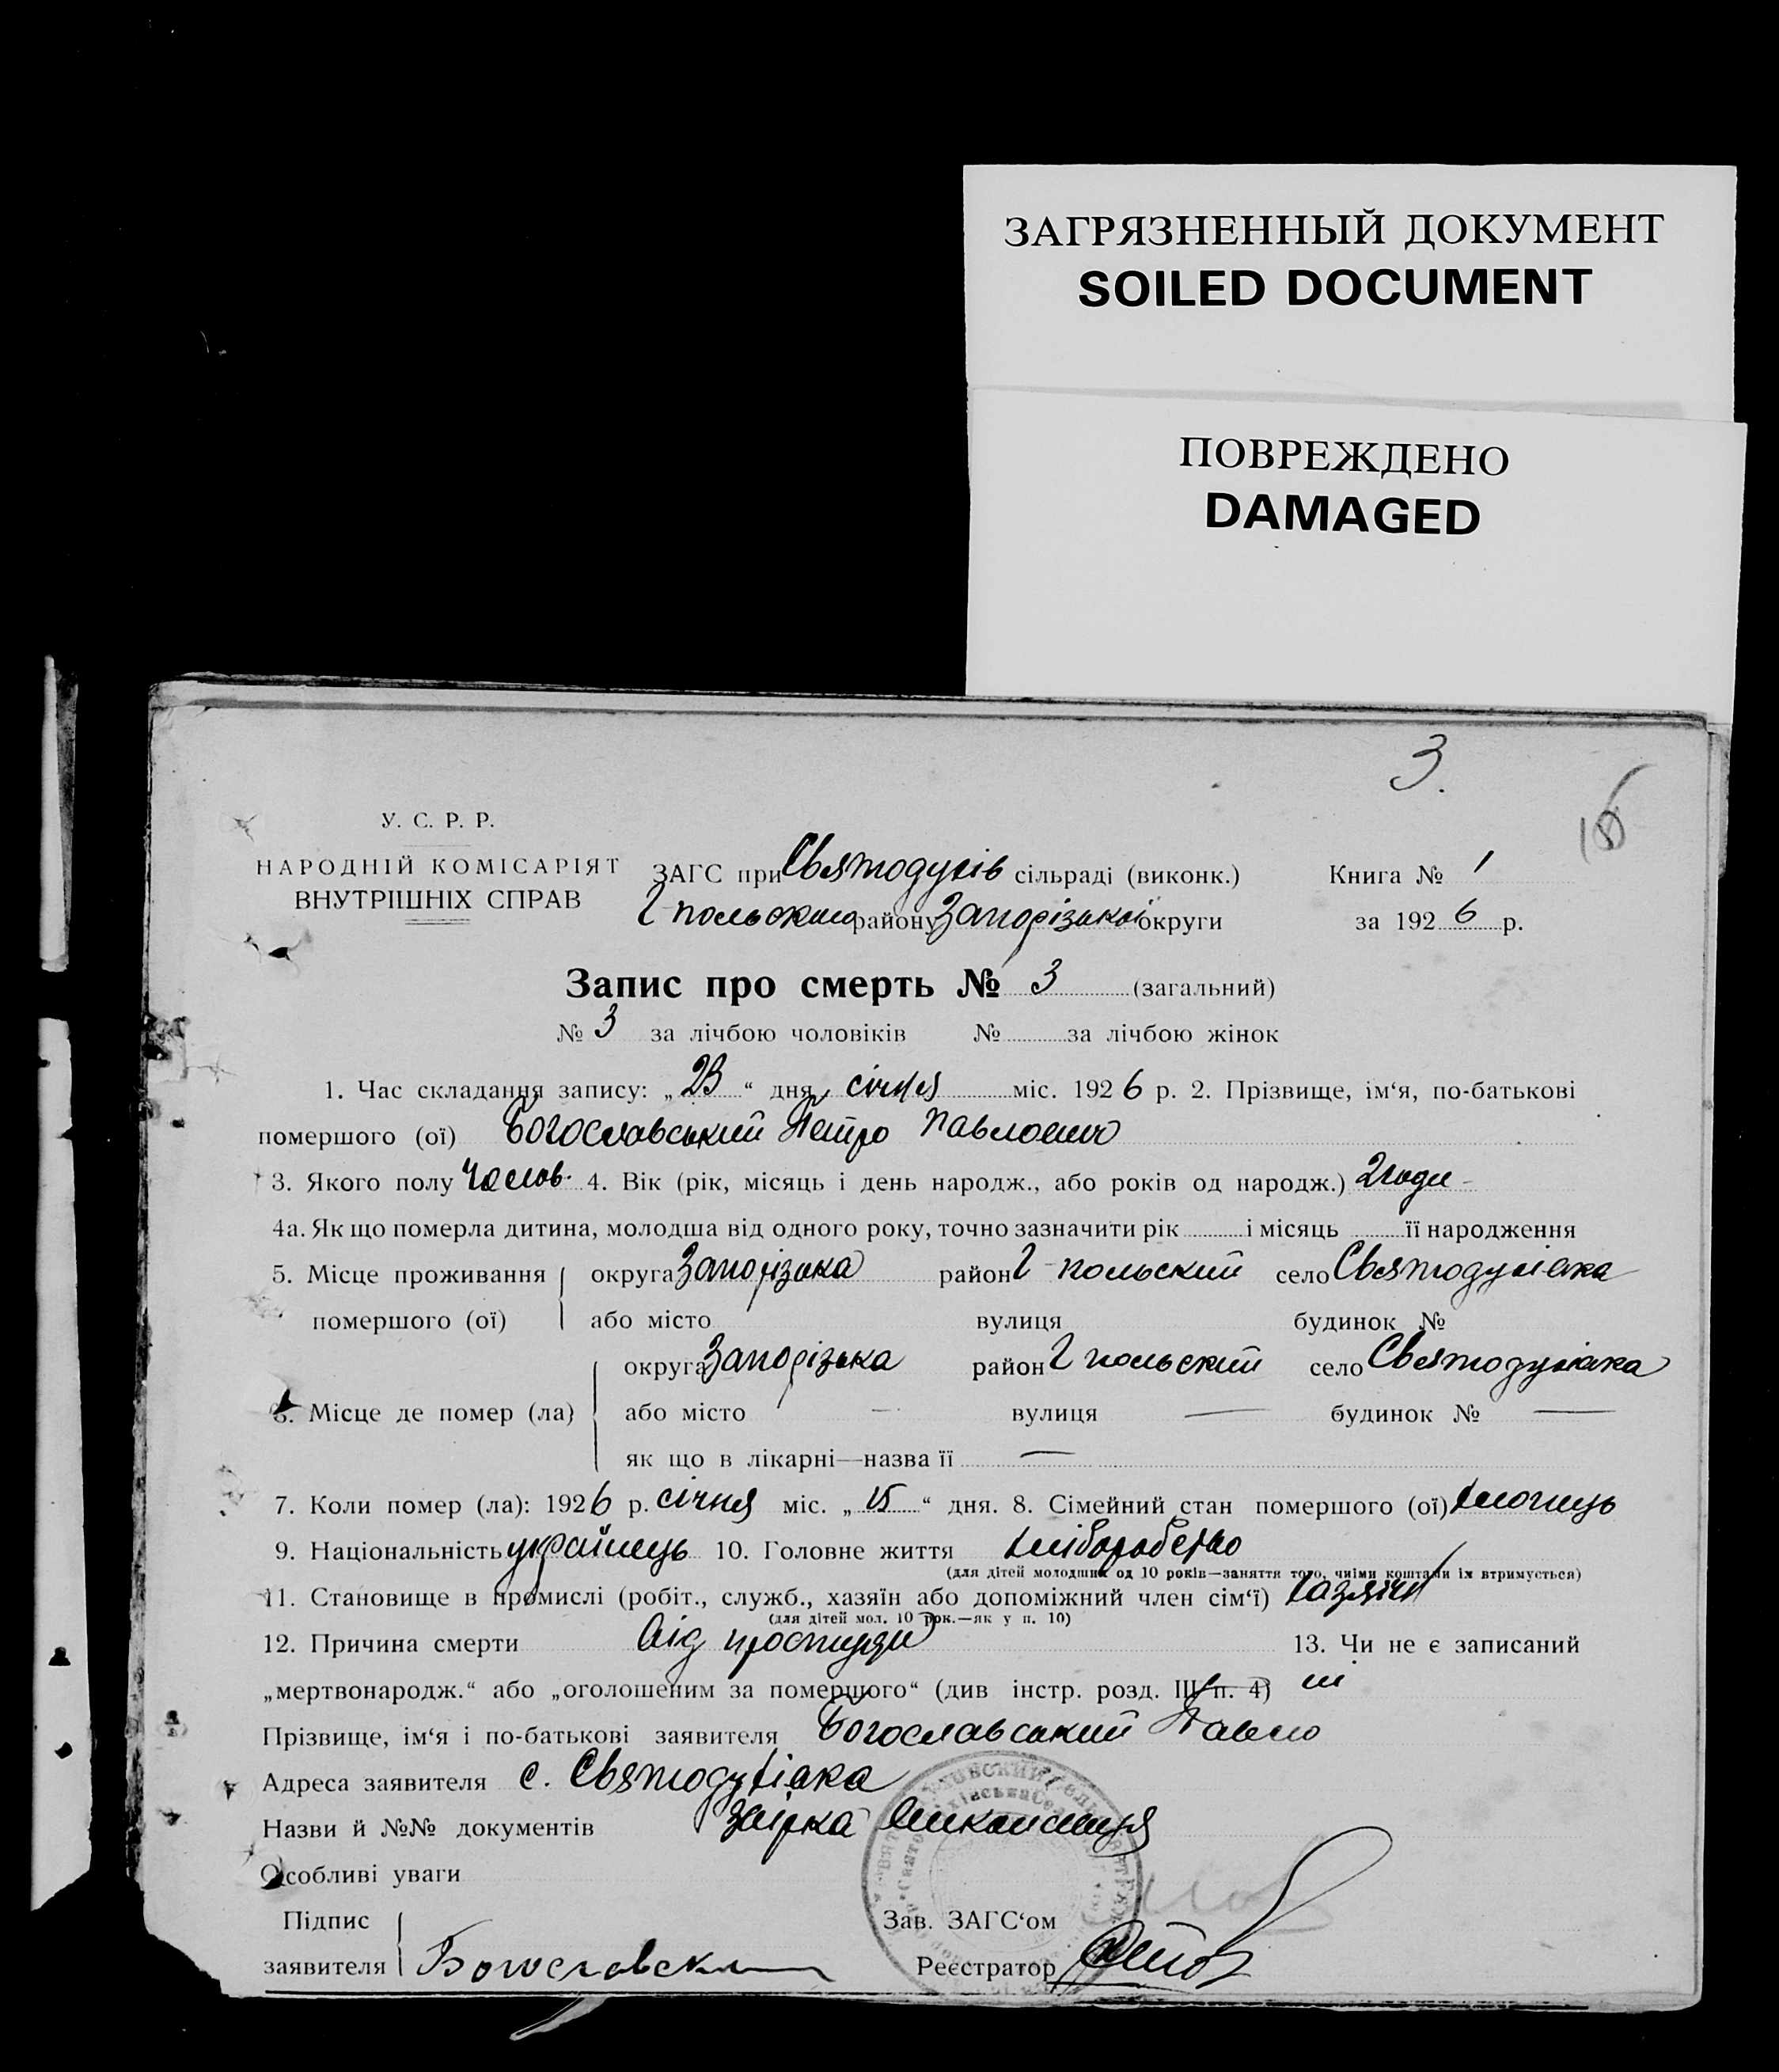 ЗАГРЯЗНЕННЫЙ ДОКУМЕНТ
SOILED DOCUMENT
ПОВРЕЖДЕНО
DAMAGED
3.
У. С. Р. Р.
НАРОДНІЙ КОМІСАРІЯТ
ВНУТРІШНІХ СПРАВ
ЗАГС при Святодухів сільраді (виконк.) Книга № 1
Г польского району Запорізької округи за 1926 р.
Запис про смерть № 3 (загальний)
№ 3 за лічбою чоловіків № за лічбою жінок
1. Час складання запису: „23“ дня січня міс. 1926 р. 2. Прізвище, ім‘я, по-батькові
помершого (ої) Богославський Петро Павлович
3. Якого полу Чолов. 4. Вік (рік, місяць і день народж., або років од народж.) 2 годи
4а. Як що померла дитина, молодша від одного року, точно зазначити рік і місяць її народження
5. Місце проживання помершого (ої) округа Запорізька район Г польский село Святодухівка
або місто вулиця будинок №
6. Місце де помер (ла) округа Запорізька район Г польский село Святодухівка
або місто — вулиця — будинок № —
як що в лікарні—назва її —
7. Коли помер (ла): 1926 р. січня міс. „15“ дня. 8. Сімейний стан помершого (ої) хлопець
9. Національність українець 10. Головне життя хліборобство
(для дітей молодших од 10 років—заняття того, чиїми коштами їх втримується)
11. Становище в промислі (робіт., служб., хазяїн або допоміжний член сім‘ї) хазяїн
(для дітей мол. 10 рок.—як у п. 10)
12. Причина смерти Від простуди 13. Чи не є записаний
„мертвонародж.“ або „оголошеним за помершого“ (див інстр. розд. III п. 4) ні
Прізвище, ім‘я і по-батькові заявителя Богославський Павло
Адреса заявителя с. Святодухівка
Назви й №№ документів
Особливі уваги
Підпис заявителя Богославски
Зав. ЗАГС‘ом
Реєстратор